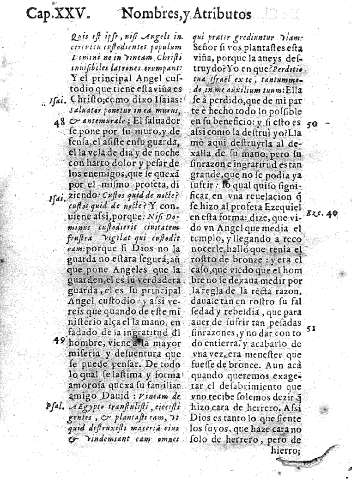 Cap.XXV. Nombres, y Atributos
Quis est ipse, nisi Angeli in
circuitu custodientes populum
Domini ne in vineam Christi
invisibiles latrones irrumpant?
Y el principal Angel custodio
que tiene esta viña es
Isai. Christo, como dixo Isaias:
Salvator ponetur in ea murus,
48 & antemurale: El salvador
se pone por su muro, y defensa,
el asiste en su guarda,
el la vela de dia, y de noche
con harto dolor y pesar de
los enemigos, que se quexã
por el mismo profeta, di
Isai. ziendo: Custos quid de nocte?
custos quid de nocte? Y con
viene assi, porque: Nisi Dominus
custodierit civitatem
frustra vigilat qui custodit
eam: porque si Dios no la
guarda no estara segura, aũ
que pone Angeles que la
guarden, el es su verdadera
guarda, el es su principal
Angel custodio: y assi vereis
que quando de este mi
nisterio alça el la mano, en
fadado de la ingratitud del
49 hombre, viene a la mayor
miseria y desuentura que
se puede pensar. De todo
lo qual se lastima y forma
amorosa quexa su familiar
amigo Dauid: Vineam de
Psal. AEgypto transtulisti, eiecisti
gentes, & plantasti eam, Vt
quid destruxisti maceriã eius
& vindemiant eam omnes
qui prætergrediuntur viam:
Señor si vos plantastes esta
viña, porque la aueys destruydo?
Yo en que? Perditio
tua Israel ex te, tantummodo
in me auxilium tuum: Ella
se à perdido, que de mi parte
è hecho todo lo possible
en su beneficio: y si esto es 50
assi como la destrui yo? Ella
mo aqui destruyrla al dexalla
de su mano, pero su
sinrazon e ingratitud es tan
grande, que no se podia ya
sufrir: lo qual quiso significar
en vna reuelacion q̃
se hizo al profeta Ezequiel Eze. 40
en esta forma: dize, que vido
vn Angel que media el
templo, y llegando a reconocerle,
hallò que tenia el
rostro de bronze: y era el
caso, que viẽdo que el hombre
no se dexaua medir por
la regla de la recta razon,
dauale tan en rostro su falsedad
y rebeldia, que para
auer de sufrir tan pesadas
sinrazones, y no dar con to 51
do en tierra, y acabarlo de
vna vez, era menester que
fuesse de bronce. Aun acà
quando queremos exagerar
el desabrimiento que
vno recibe solemos dezir q̃
hizo cara de herrero. Assi
Dios es tanto lo que siente
los suyos, que haze cara no
solo de herrero, pero de
hierro;